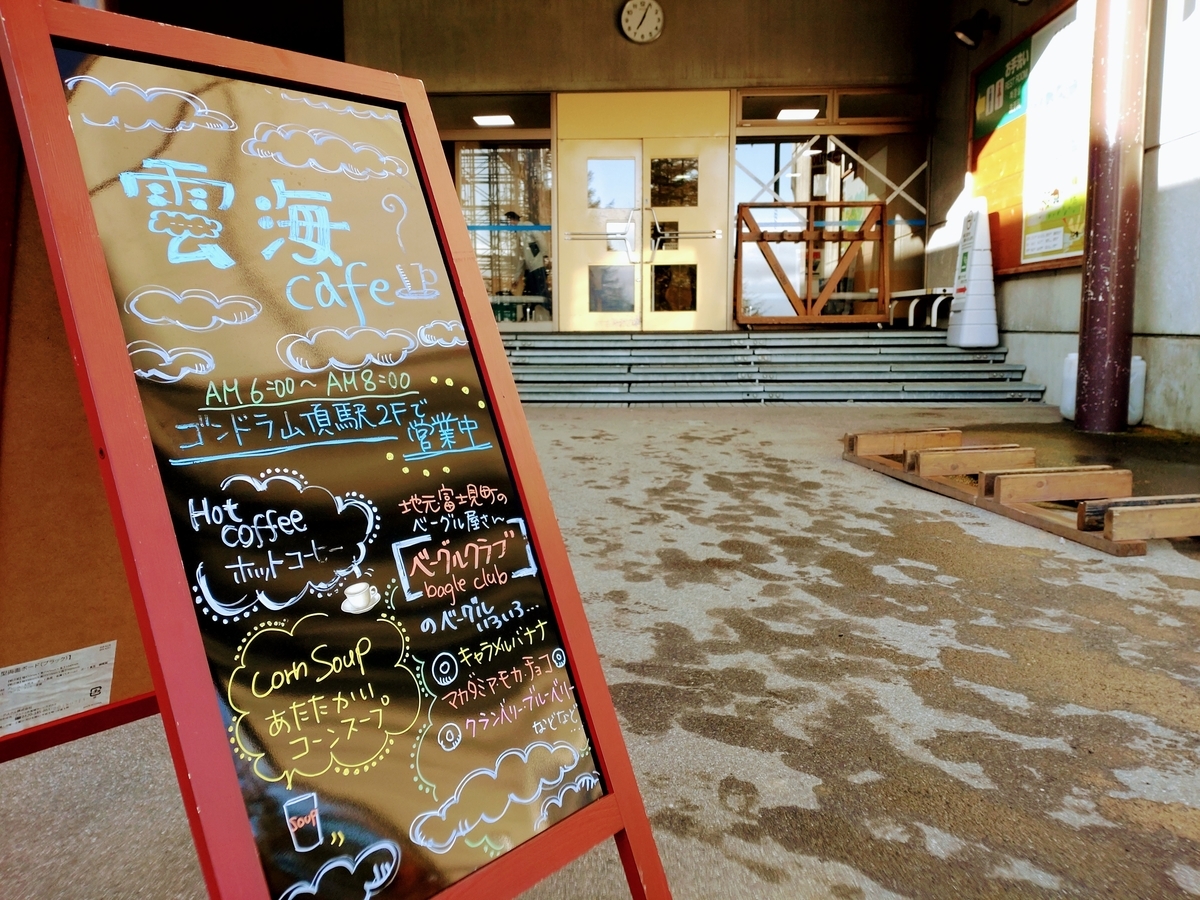 雲海
cafe
AM 6:00～AM 8:00
ゴンドラ山頂駅2Fで
営業中
Hot
coffee
ホットコーヒー
地元富士見町の
ベーグル屋さん
ベーグルクラブ
bagle club
のベーグル
いろいろ…
キャラメルバナナ
マカダミア・モカ・チョコ
クランベリー・ブルーベリー
などなど…
Corn Soup
あたたかい
コーンスープ
soup
お手洗い